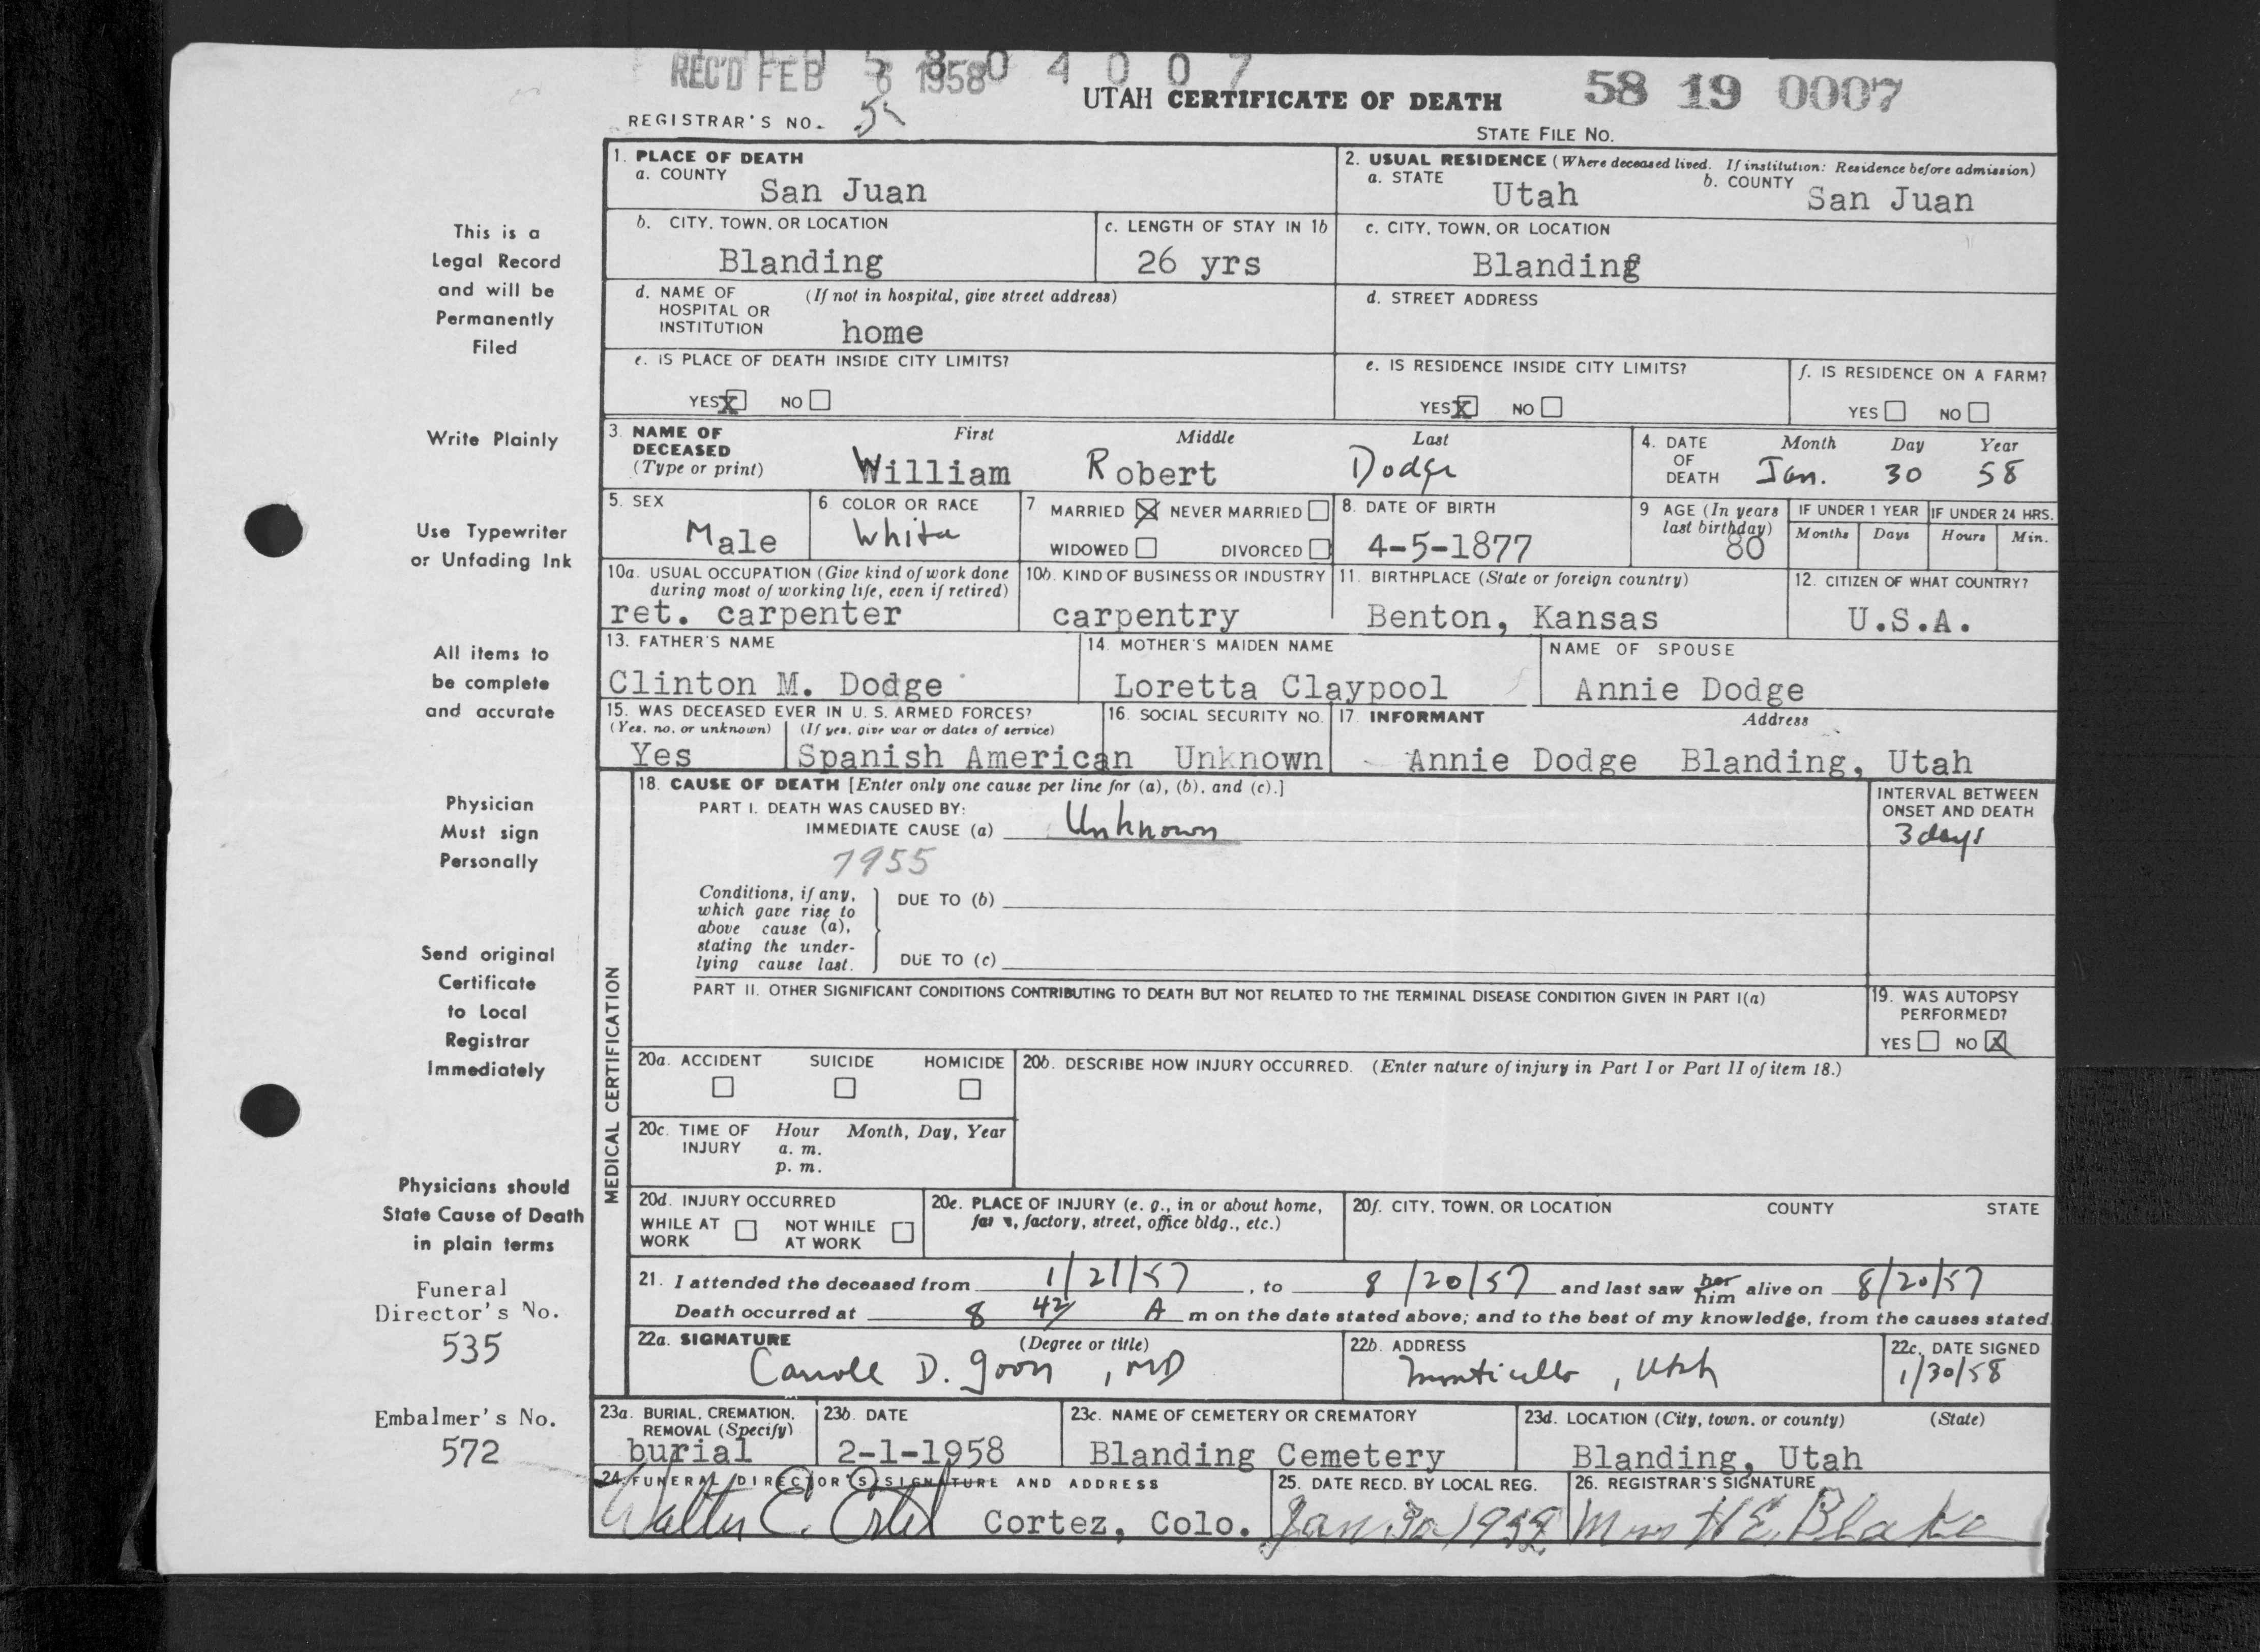 REC'D FEB 6 1958
5 8 0 4 0 0 7
58 19 0007
UTAH CERTIFICATE OF DEATH
REGISTRAR'S NO. 5
STATE FILE NO.
1. PLACE OF DEATH
a. COUNTY
San Juan
2. USUAL RESIDENCE (Where deceased lived. If institution: Residence before admission)
a. STATE Utah b. COUNTY San Juan
b. CITY, TOWN, OR LOCATION
Blanding
c. LENGTH OF STAY IN 1b
26 yrs
c. CITY, TOWN, OR LOCATION
Blanding
d. NAME OF HOSPITAL OR INSTITUTION (If not in hospital, give street address)
home
d. STREET ADDRESS
e. IS PLACE OF DEATH INSIDE CITY LIMITS?
YES X NO
e. IS RESIDENCE INSIDE CITY LIMITS?
YES X NO
f. IS RESIDENCE ON A FARM?
YES NO
3. NAME OF DECEASED (Type or print)
First Middle Last
William Robert Dodge
4. DATE OF DEATH
Month Day Year
Jan. 30 58
5. SEX
Male
6 COLOR OR RACE
White
7 MARRIED X NEVER MARRIED
WIDOWED DIVORCED
8. DATE OF BIRTH
4-5-1877
9 AGE (In years last birthday)
80
IF UNDER 1 YEAR
Months Days
IF UNDER 24 HRS.
Hours Min.
10a. USUAL OCCUPATION (Give kind of work done during most of working life, even if retired)
ret. carpenter
10b. KIND OF BUSINESS OR INDUSTRY
carpentry
11. BIRTHPLACE (State or foreign country)
Benton, Kansas
12. CITIZEN OF WHAT COUNTRY?
U.S.A.
13. FATHER'S NAME
Clinton M. Dodge
14. MOTHER'S MAIDEN NAME
Loretta Claypool
NAME OF SPOUSE
Annie Dodge
15. WAS DECEASED EVER IN U. S. ARMED FORCES?
(Yes, no, or unknown) (If yes, give war or dates of service)
Yes Spanish American
16. SOCIAL SECURITY NO.
Unknown
17. INFORMANT Address
Annie Dodge Blanding, Utah
MEDICAL CERTIFICATION
18. CAUSE OF DEATH [Enter only one cause per line for (a), (b), and (c).]
PART I. DEATH WAS CAUSED BY:
IMMEDIATE CAUSE (a) Unknown
7955
INTERVAL BETWEEN ONSET AND DEATH
3 days
Conditions, if any, which gave rise to above cause (a), stating the underlying cause last.
DUE TO (b)
DUE TO (c)
PART II. OTHER SIGNIFICANT CONDITIONS CONTRIBUTING TO DEATH BUT NOT RELATED TO THE TERMINAL DISEASE CONDITION GIVEN IN PART I(a)
19. WAS AUTOPSY PERFORMED?
YES NO X
20a. ACCIDENT SUICIDE HOMICIDE
20b. DESCRIBE HOW INJURY OCCURRED. (Enter nature of injury in Part I or Part II of item 18.)
20c. TIME OF INJURY Hour Month, Day, Year
a. m.
p. m.
20d. INJURY OCCURRED
WHILE AT WORK NOT WHILE AT WORK
20e. PLACE OF INJURY (e. g., in or about home, factory, street, office bldg., etc.)
20f. CITY, TOWN, OR LOCATION COUNTY STATE
21. I attended the deceased from 1/21/57, to 8/20/57 and last saw her him alive on 8/20/57
Death occurred at 8 42 A m on the date stated above; and to the best of my knowledge, from the causes stated.
22a. SIGNATURE (Degree or title)
Carroll D. Goon, MD
22b. ADDRESS
Monticello, Utah
22c. DATE SIGNED
1/30/58
23a. BURIAL, CREMATION, REMOVAL (Specify)
burial
23b. DATE
2-1-1958
23c. NAME OF CEMETERY OR CREMATORY
Blanding Cemetery
23d. LOCATION (City, town, or county) (State)
Blanding, Utah
24. FUNERAL DIRECTOR'S SIGNATURE AND ADDRESS
Walter E. Ertel Cortez, Colo.
25. DATE RECD. BY LOCAL REG.
Jan 30 1958
26. REGISTRAR'S SIGNATURE
Mrs H E. Blake
This is a
Legal Record
and will be
Permanently
Filed
Write Plainly
Use Typewriter
or Unfading Ink
All items to
be complete
and accurate
Physician
Must sign
Personally
Send original
Certificate
to Local
Registrar
Immediately
Physicians should
State Cause of Death
in plain terms
Funeral
Director's No.
535
Embalmer's No.
572